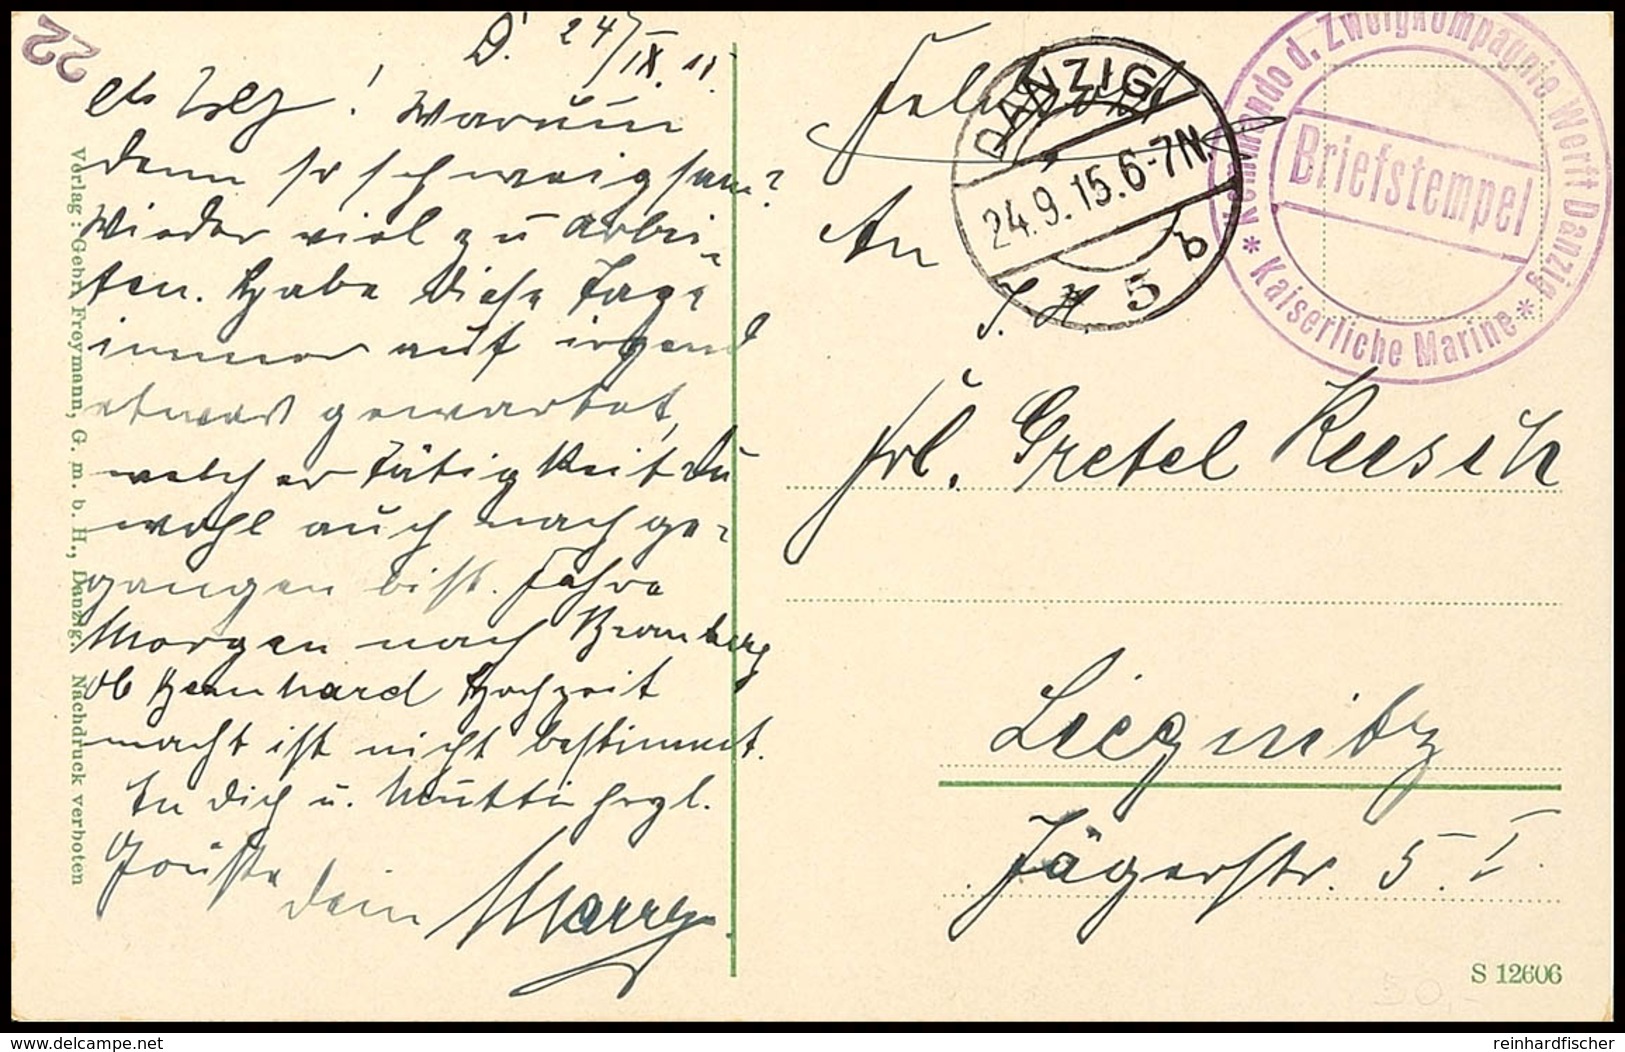 22
D. 24/IX.15.
! Warum
denn so schweigsam?
Wieder viel zu arbei-
ten. Habe diese Tage
immer auf irgend
etwas gewartet,
welcher Tätigkeit Du
wohl auch nachge-
gangen bist. Fahre
Morgen nach
Ob Bernhard Hochzeit
macht ist nicht bestimmt.
Dich u. Mutti hrzl.
Grüße
Dein
Verlag: Gebr. Freymann, G. m. b. H., Danzig. Nachdruck verboten
Feldpost
An
S. H.
DANZIG
24.9.15.6-7N.
* 5 b
Kommando d. Zweigkompagnie Werft Danzig
Briefstempel
* Kaiserliche Marine *
Frl. Gretel
Liegnitz
Jägerstr. 5. I.
S 12606
50,-
reinhardfischer
www.delcampe.net